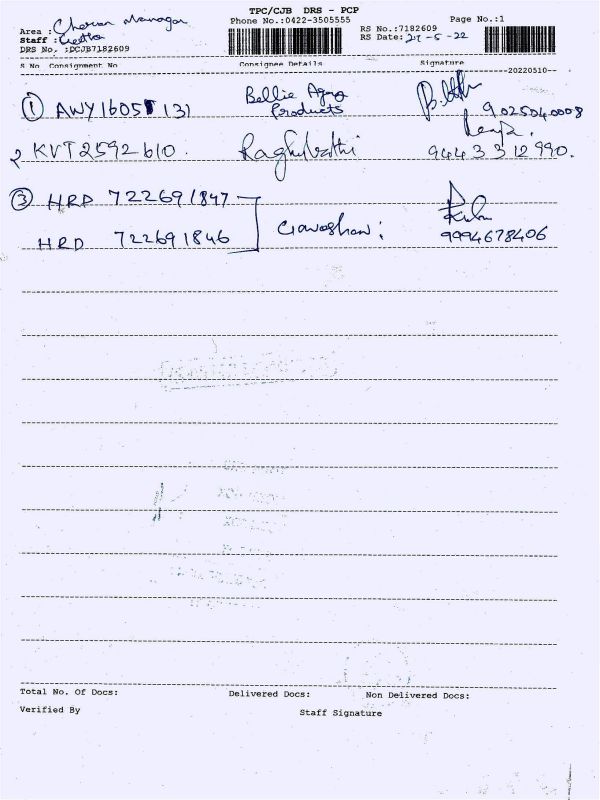 TPC/CJB DRS - PCP
Area : Cheran Managar Phone No.:0422-3505555 Page No.:1
Staff : Geetha RS No.:7182609
DRS No. :PCJB7182609 RS Date: 21-5-22
S No Consignment No Consignee Details Signature
20220510
① AWY1605 131 Bellie Agro 9025040008
Products
2 KVT2592610. Raghupathi 9443312990.
③ HRD 722691847
HRD 722691846 9994678406
Total No. Of Docs: Delivered Docs: Non Delivered Docs:
Verified By Staff Signature